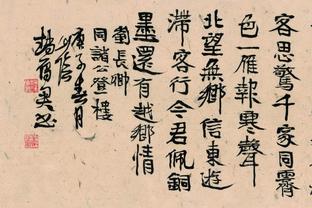 客思驚千家同霽
色一雁報寒聲
北望無鄉信東遊
滯客行今君佩銅
墨還有越鄉情
劉長卿
同諸公登樓
庚子春月